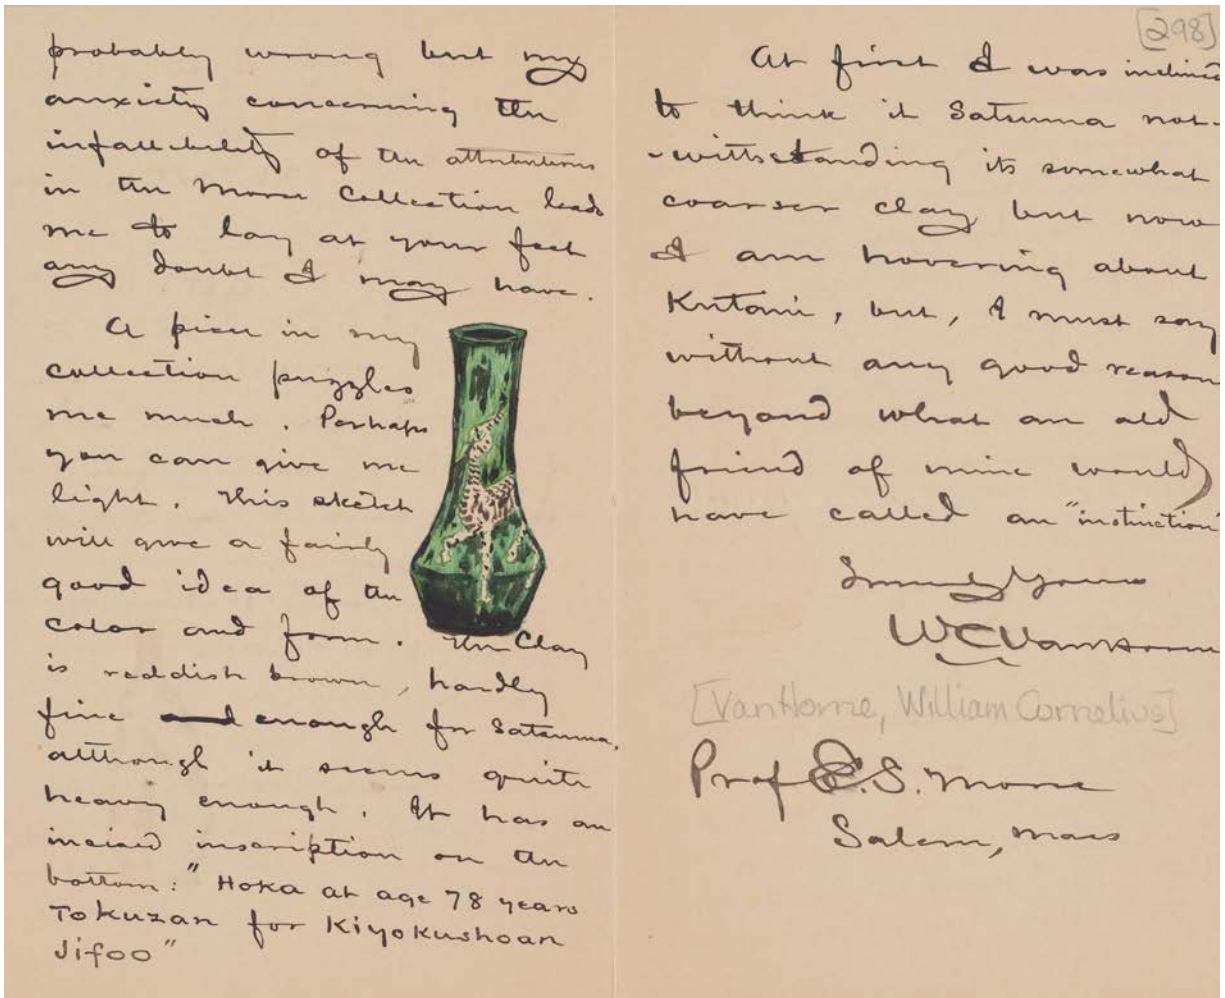 probably wrong but my
anxiety concerning the
infallibility of the attributions
in the Morse Collection leads
me to lay at your feet
any doubt I may have.
A piece in my
collection puzzles
me much. Perhaps
you can give me
light. This sketch
will give a fairly
good idea of the
color and form. The Clay
is reddish brown, hardly
fine enough for Satsuma,
although it seems quite
heavy enough. It has an
incised inscription on the
bottom: "Hoka at age 78 years
Tokuzan for Kiyokushoan
Jifoo"
[298]
At first I was inclined
to think it Satsuma not-
-withstanding its somewhat
coarser clay but now
I am hovering about
Kutani, but, I must say
without any good reason
beyond what an old
friend of mine would
have called an "instinction"
Sincerely Yours
WC Van Horne
[VanHorne, William Cornelius]
Prof E.S. Morse
Salem, Mass